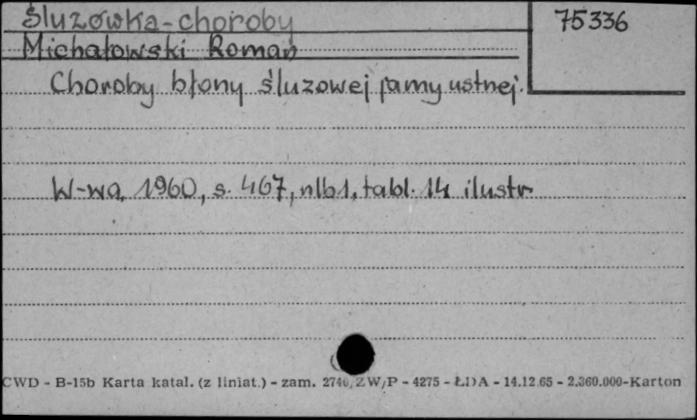 Śluzówka-choroby
75336
Michałowski Roman
Choroby błony śluzowej jamy ustnej.
W-wa, 1960, s. 467, nlb1, tabl. 14 ilustr
CWD - B-15b Karta katal. (z liniat.) - zam. 2740/ZW/P - 4275 - ŁDA - 14.12.65 - 2.360.000-Karton